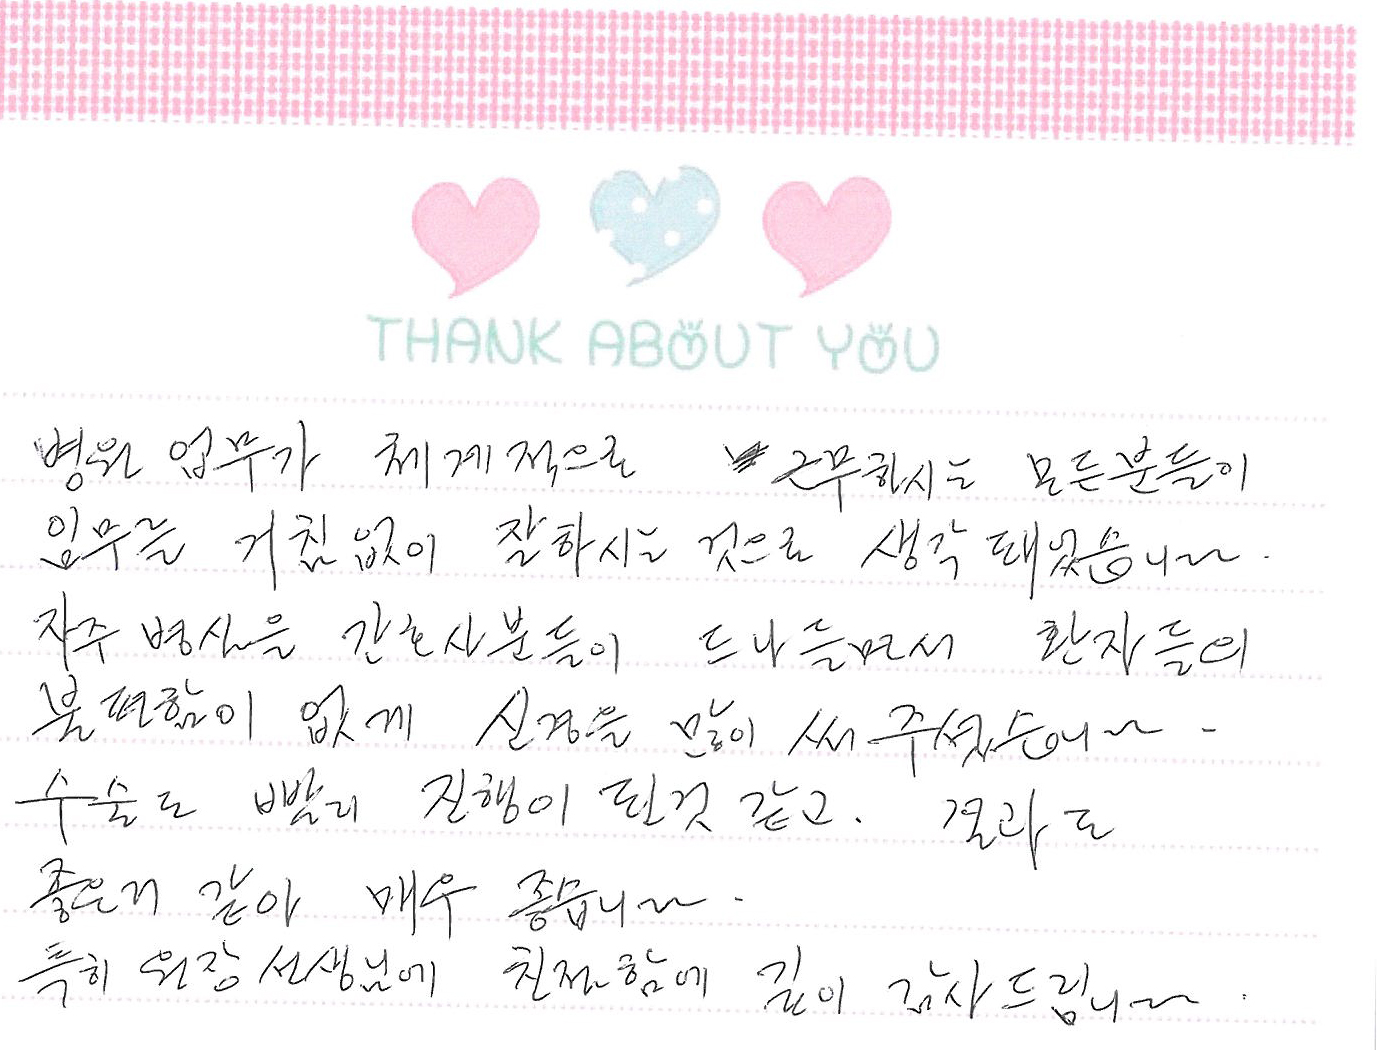 THANK ABOUT YOU
병원 업무가 체계적으로 근무하시는 모든분들이
임무를 거침없이 잘하시는 것으로 생각 돼었습니다.
자주 병실을 간호사분들이 드나들면서 환자들의
불편함이 없게 신경을 많이 써 주셨습니다.
수술도 빨리 진행이 된것 같고. 결과도
좋은거 같아 매우 좋습니다.
특히 원장선생님에 친절함에 깊이 감사드립니다.